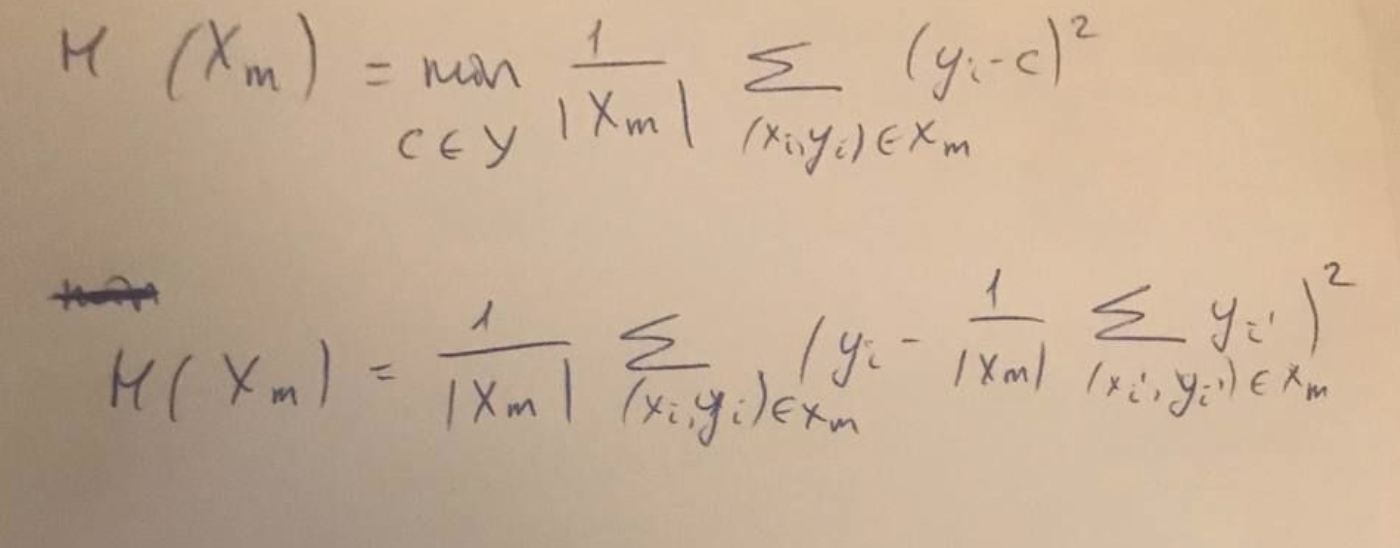 H (X_m) = min_{c ∈ Y} 1/|X_m| Σ_{(x_i, y_i) ∈ X_m} (y_i - c)^2
H(X_m) = 1/|X_m| Σ_{(x_i, y_i) ∈ X_m} (y_i - 1/|X_m| Σ_{(x_i', y_i') ∈ X_m} y_i')^2